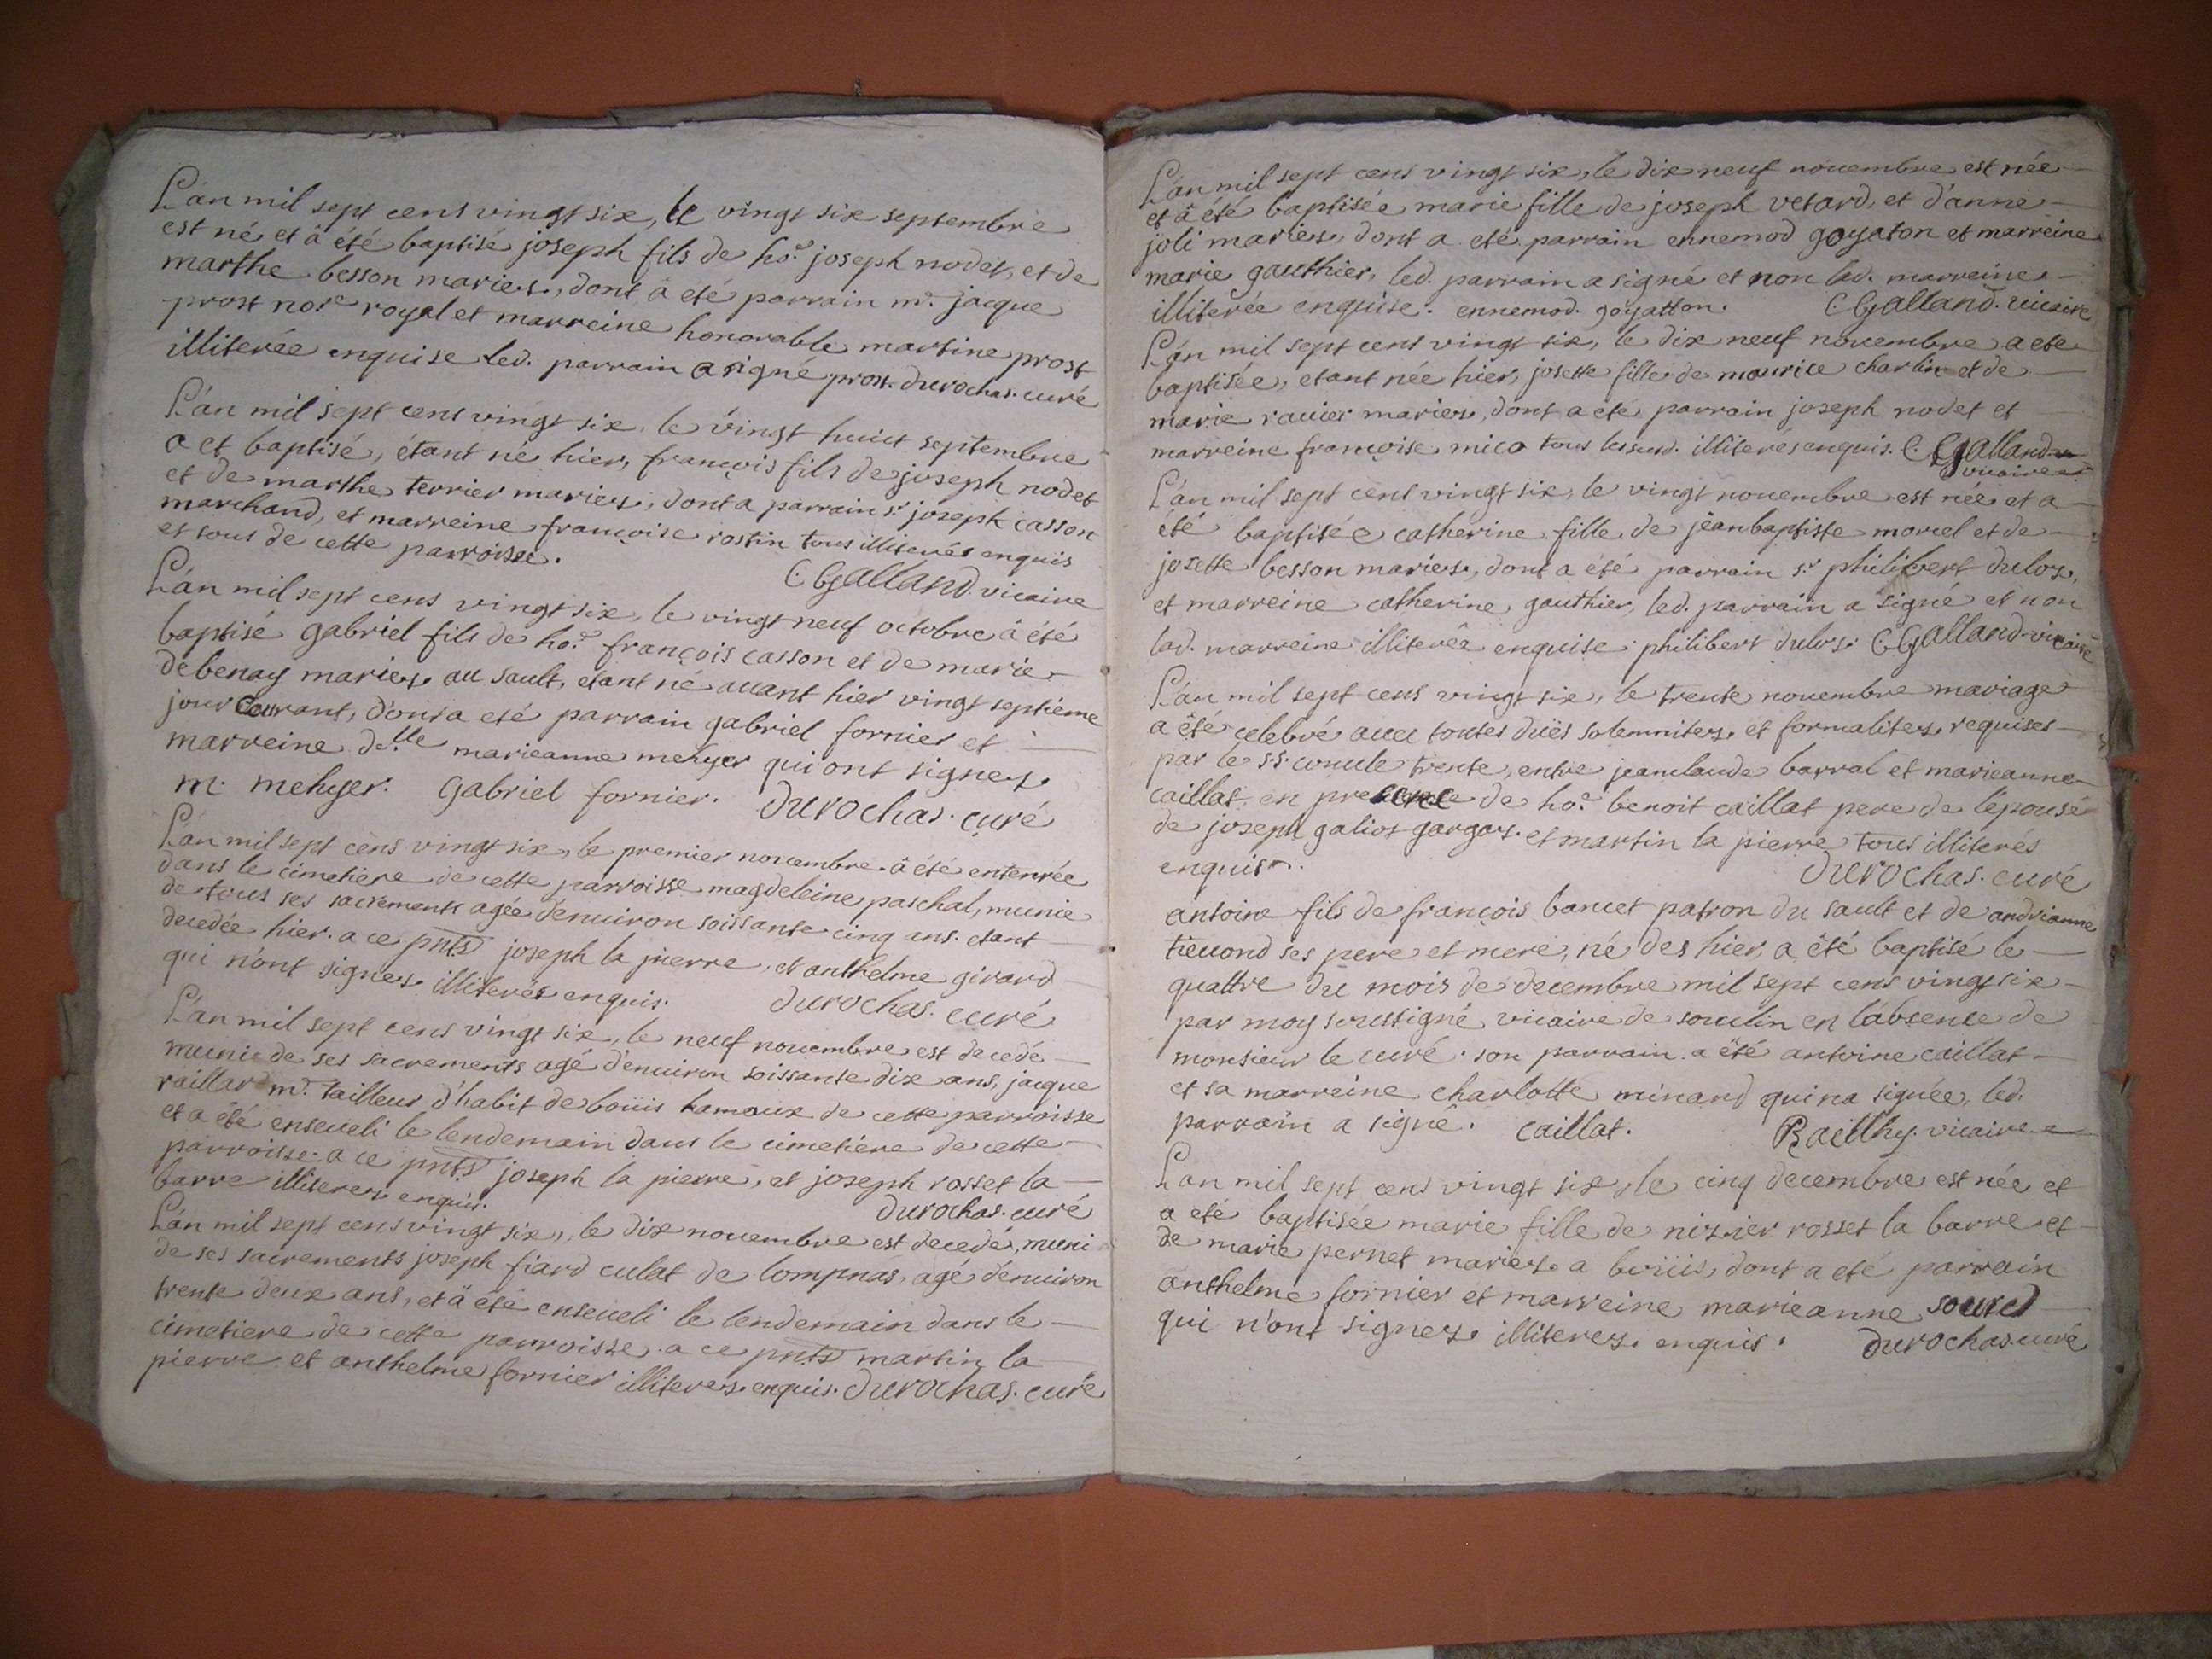 L'án mil sept cens vingt six, le vingt six septembre
est né et â été baptisé joseph fils de ho.e joseph nodet, et de
marthe besson mariez, dont â eté parrain m.r jacque
prost no.re royal et marreine honorable martine prost
illiterée enquise led. parrain a signé prost. durochas. curé
L'án mil sept cens vingt six, le vingt huict septembre
a et baptisé, étant né hier, françois fils de joseph nodet
et de marthe terrier mariez, dont a parrain s.r joseph casson
marchand, et marreine françoise rostin tous illiterés enquis
et tous de cette parroisse.
C. Galland vicaire
L'án mil sept cens vingt six, le vingt neuf octobre â été
baptisé gabriel fils de ho.e françois casson et de marie
debenay mariez au sault, etant né auant hier vingt septiéme
jour courant, dont a eté parrain gabriel fornier et
marreine d.lle marieanne mehyer qui ont signez
m. mehyer. gabriel fornier. durochas. curé
L'án mil sept cens vingt six, le premier nouembre â été enterrée
dans le cimetiére de cette parroisse magdeleine paschal, munie
de tous ses sacrements agée d'enuiron soissante cinq ans. etant
decedée hier. a ce pnts joseph la pierre, et anthelme girard
qui n'ont signez illiterés enquis. durochas. curé
L'án mil sept cens vingt six, le neuf nouembre est decedé
muni de ses sacrements agé d'enuiron soissante dix ans, jacque
raillar m.d tailleur d'habit de boüis hameaux de cette parroisse
et a été enseueli le lendemain dans le cimetiére de cette
parroisse. a ce pnts joseph la pierre, et joseph rosset la
barre illiterez enquis. durochas. curé
L'án mil sept cens vingt six, le dix nouembre est decedé, muni
de ses sacrements joseph fiard culat de lompnas, agé d'enuiron
trente deux ans, et â été enseueli le lendemain dans le
cimetiere de cette parroisse. a ce pnts martin la
pierre et anthelme fornier illiterez enquis. durochas. curé
L'án mil sept cens vingt six, le dix neuf nouembre est née
et â été baptisée marie fille de joseph vetard, et d'anne
joli mariez, dont a eté parrain ennemod goyaton et marreine
marie gauthier, led. parrain a signé et non lad. marreine
illiterée enquise. ennemod. goyatton. C. Galland. vicaire
L'án mil sept cens vingt six, le dix neuf nouembre a ete
baptisée, etant née hier, josette fille de maurice charlin et de
marie rauier mariez, dont a été parrain joseph nodet et
marreine françoise mico tous lessusd. illiterés enquis. C. Galland
vicaire
L'án mil sept cens vingt six, le vingt nouembre est née et a
été baptisée catherine fille de jeanbaptiste morel et de
josette besson mariez, dont a été parrain s.r philibert duloz,
et marreine catherine gauthier, led. parrain a signé et non
lad. marreine illiterée enquise. philibert duloz. C. Galland vicaire
L'án mil sept cens vingt six, le trente nouembre mariage
a été celebré auec toutes duës solemnitez et formalitez requises
par le s.s. concile trente, entre jeanclaude barral et marieanne
caillat en presence de ho.e benoit caillat pere de l'épouse
de joseph galiot gargoz. et martin la pierre tous illiterés
enquis. durochas. curé
antoine fils de françois bancet patron du sault et de andrianne
tieuond ses pere et mere, né des hier, a été baptisé le
quattre du mois de decembre mil sept cens vingt six
par moy soussigné vicaire de soudin en l'absence de
monsieur le curé. son parrain a été antoine caillat
et sa marreine charlotte minand qui na signée, led.
parrain a signé. caillat. Raillhy. vicaire
L'an mil sept cens vingt six, le cinq decembre est née et
a eté baptisée marie fille de nizier rosset la barre et
de marie pernet mariez a boüis, dont a eté parrain
anthelme fornier et marreine marieanne sourd
qui n'ont signez illiterez enquis. durochas. curé